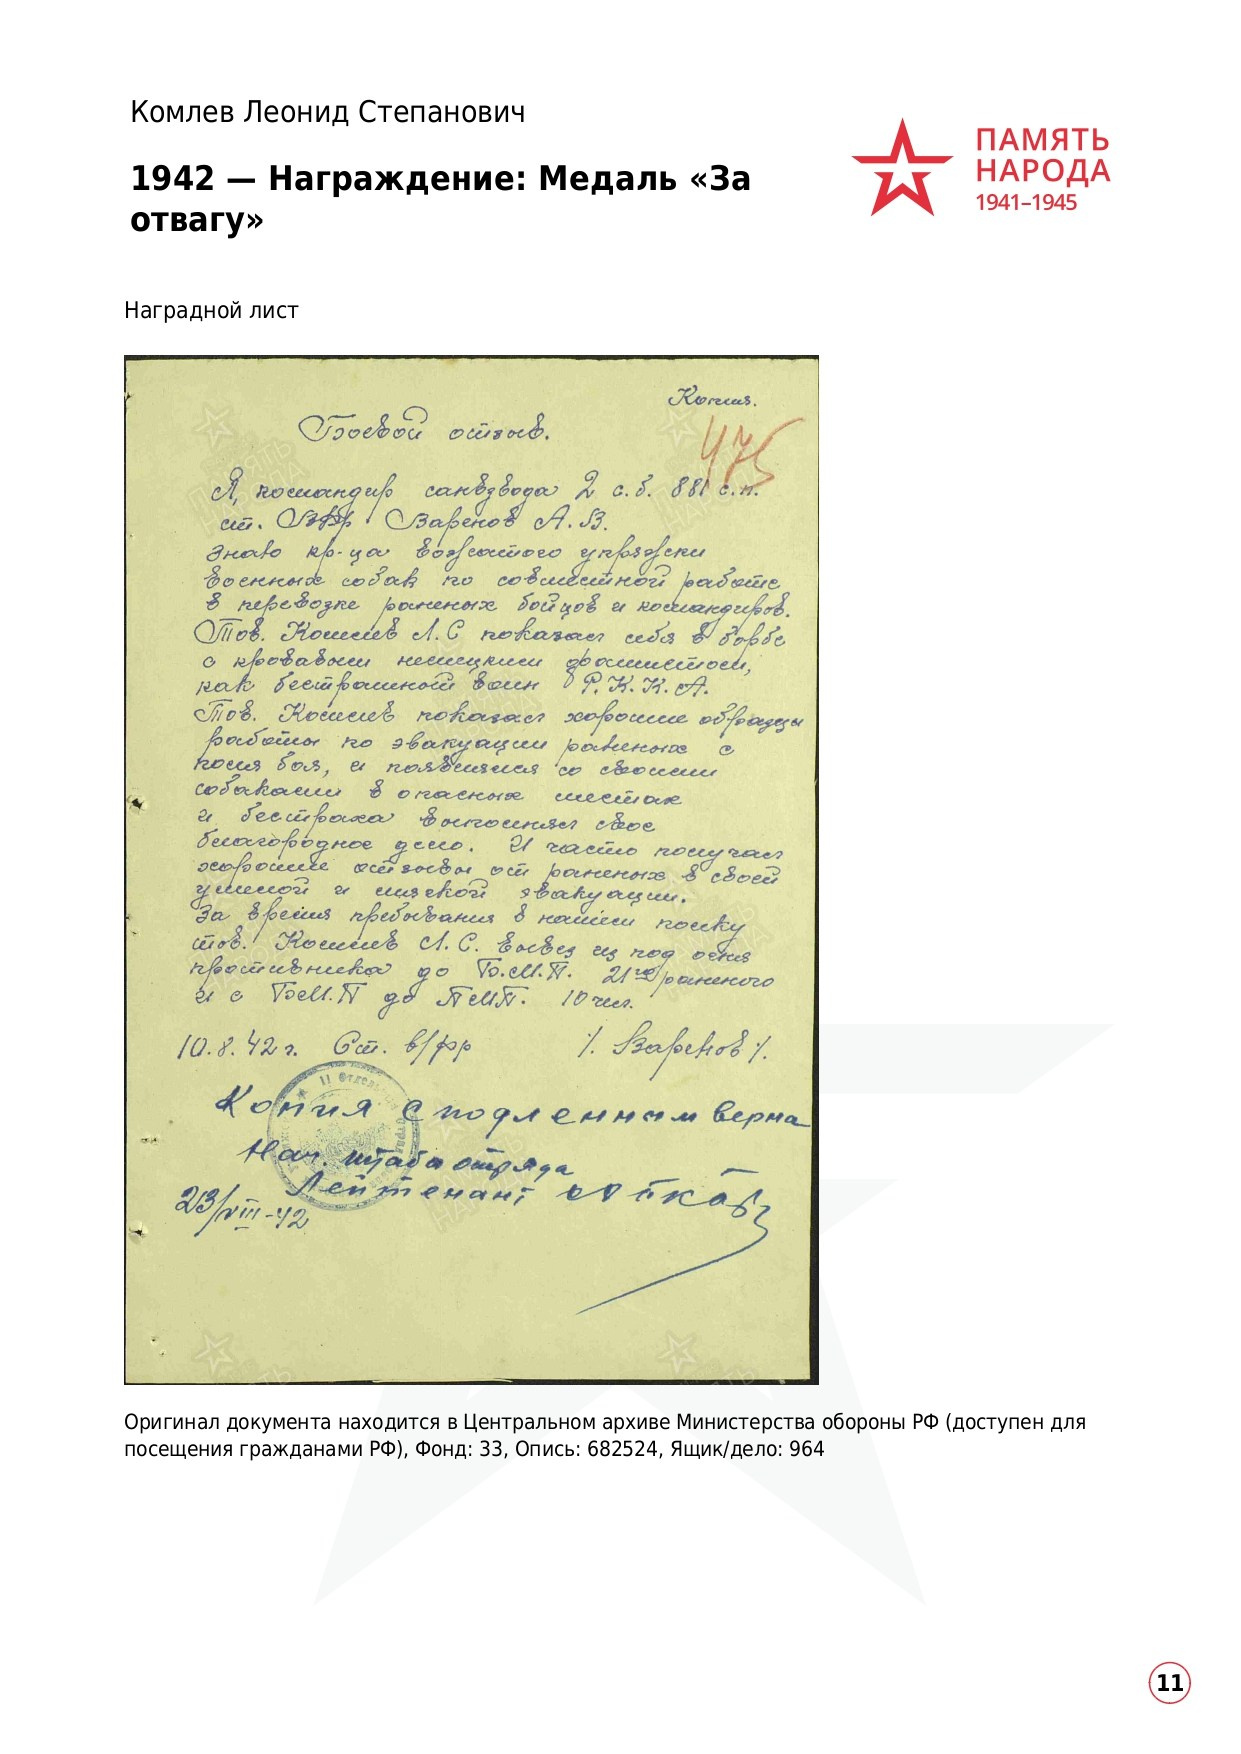 Комлев Леонид Степанович
1942 — Награждение: Медаль «За
отвагу»
ПАМЯТЬ
НАРОДА
1941–1945
Наградной лист
Копия.
Боевой отзыв.
475
Я, командир санвзвода 2 с.б. 881 с.п.
ст. Варенов А.В.
Знаю кр-ца вожатого упряжки
военных собак по совместной работе
в перевозке раненых бойцов и командиров.
Тов. Комлев Л.С показал себя в борбе
с кровавым немецким фашистом,
как бестрашной воин Р.К.К.А.
Тов. Комлев показал хорошие образцы
работы по эвакуации раненых с
поля боя, и появлялся со своими
собаками в опасных местах
и бестраха выполнял свое
благородное дело. И часто получал
хорошие отзывы от раненых в своей
умелой и эвакуации.
За время пребывания в нашем полку
тов. Комлев Л.С. вывез из под огня
противника до Б.М.П. 21го раненого
и с БМ.П до ПМП. 10 чел.
10.8.42 г. Ст. в/фр /. Варенов /.
Копия с подленным верна
Нач. штаба отряда
Лейтенант
23/VIII-42
Оригинал документа находится в Центральном архиве Министерства обороны РФ (доступен для
посещения гражданами РФ), Фонд: 33, Опись: 682524, Ящик/дело: 964
11